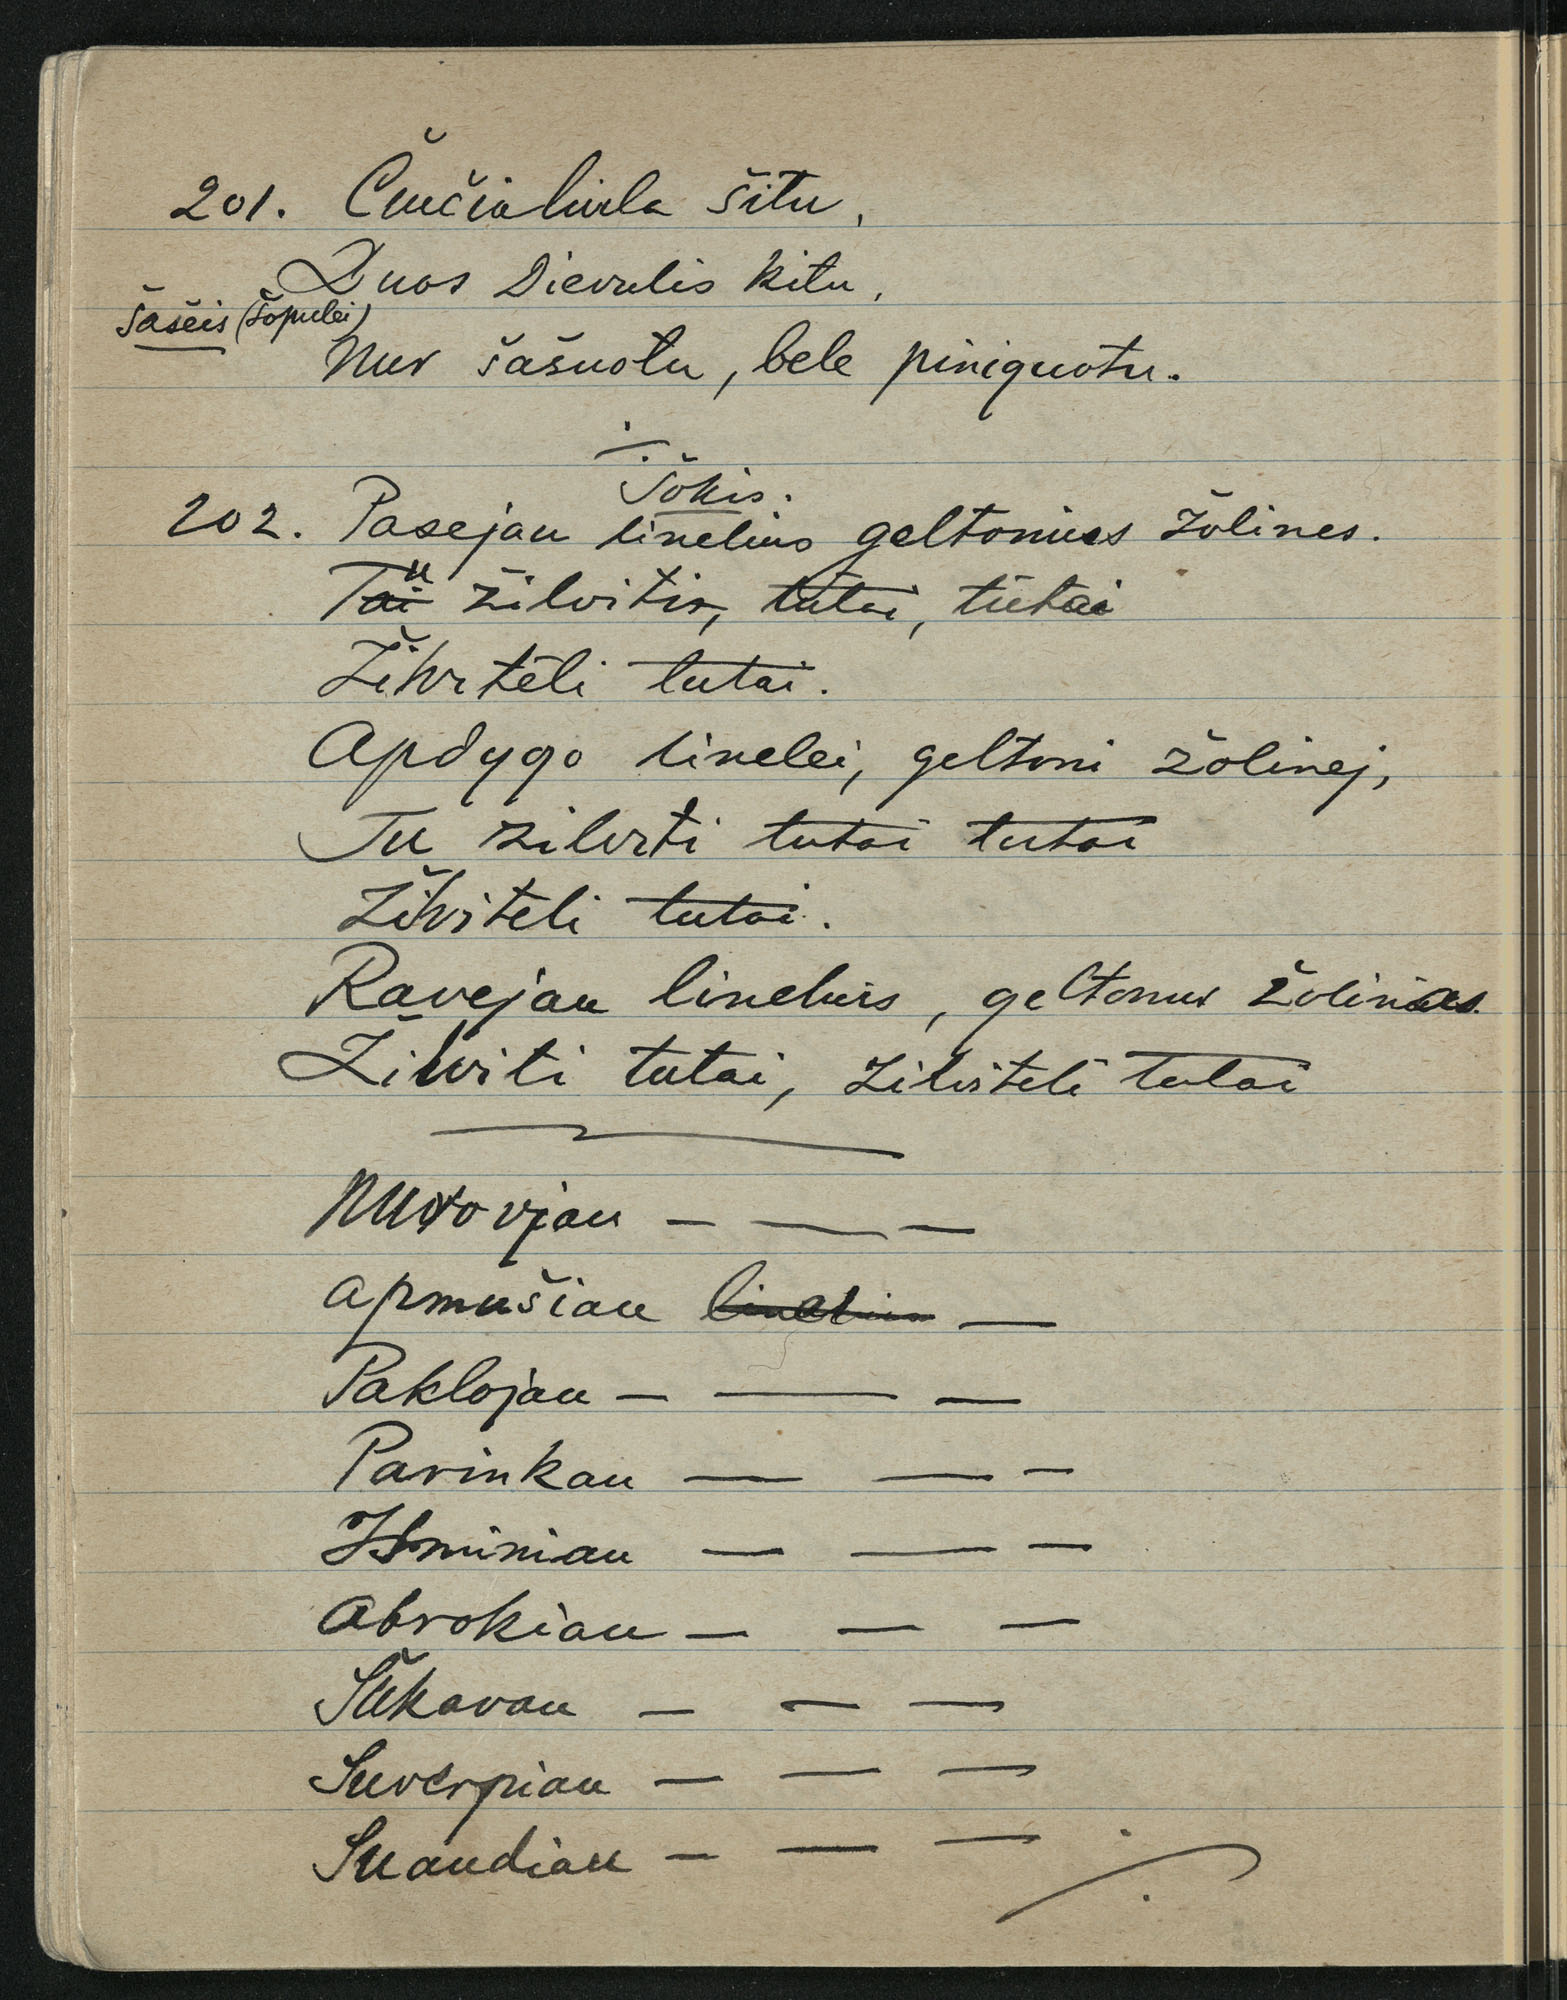 201. Čiučia liula šitu,
Duos Dievulis kitu,
šašeis (šopulei)
Nur šašuotu, bele piniguotu.
Šokis.
202. Pasejau linelius geltonius žolines.
Tu žilvitis, tutai, tutai
Žilvitėli tutai.
Apdygo linelei, geltoni žolinej,
Tu žilviti tutai tutai
Žilviteli tutai.
Ravejau linelius, geltonus žolinius.
Žilviti tutai, žilviteli tutai
Nurovjau — — —
apmušiau —
Paklojau — — —
Parinkau — — —
Išminiau — — —
Abrokiau — — —
Šukavau — — —
Suverpiau — — —
Suaudiau — — —